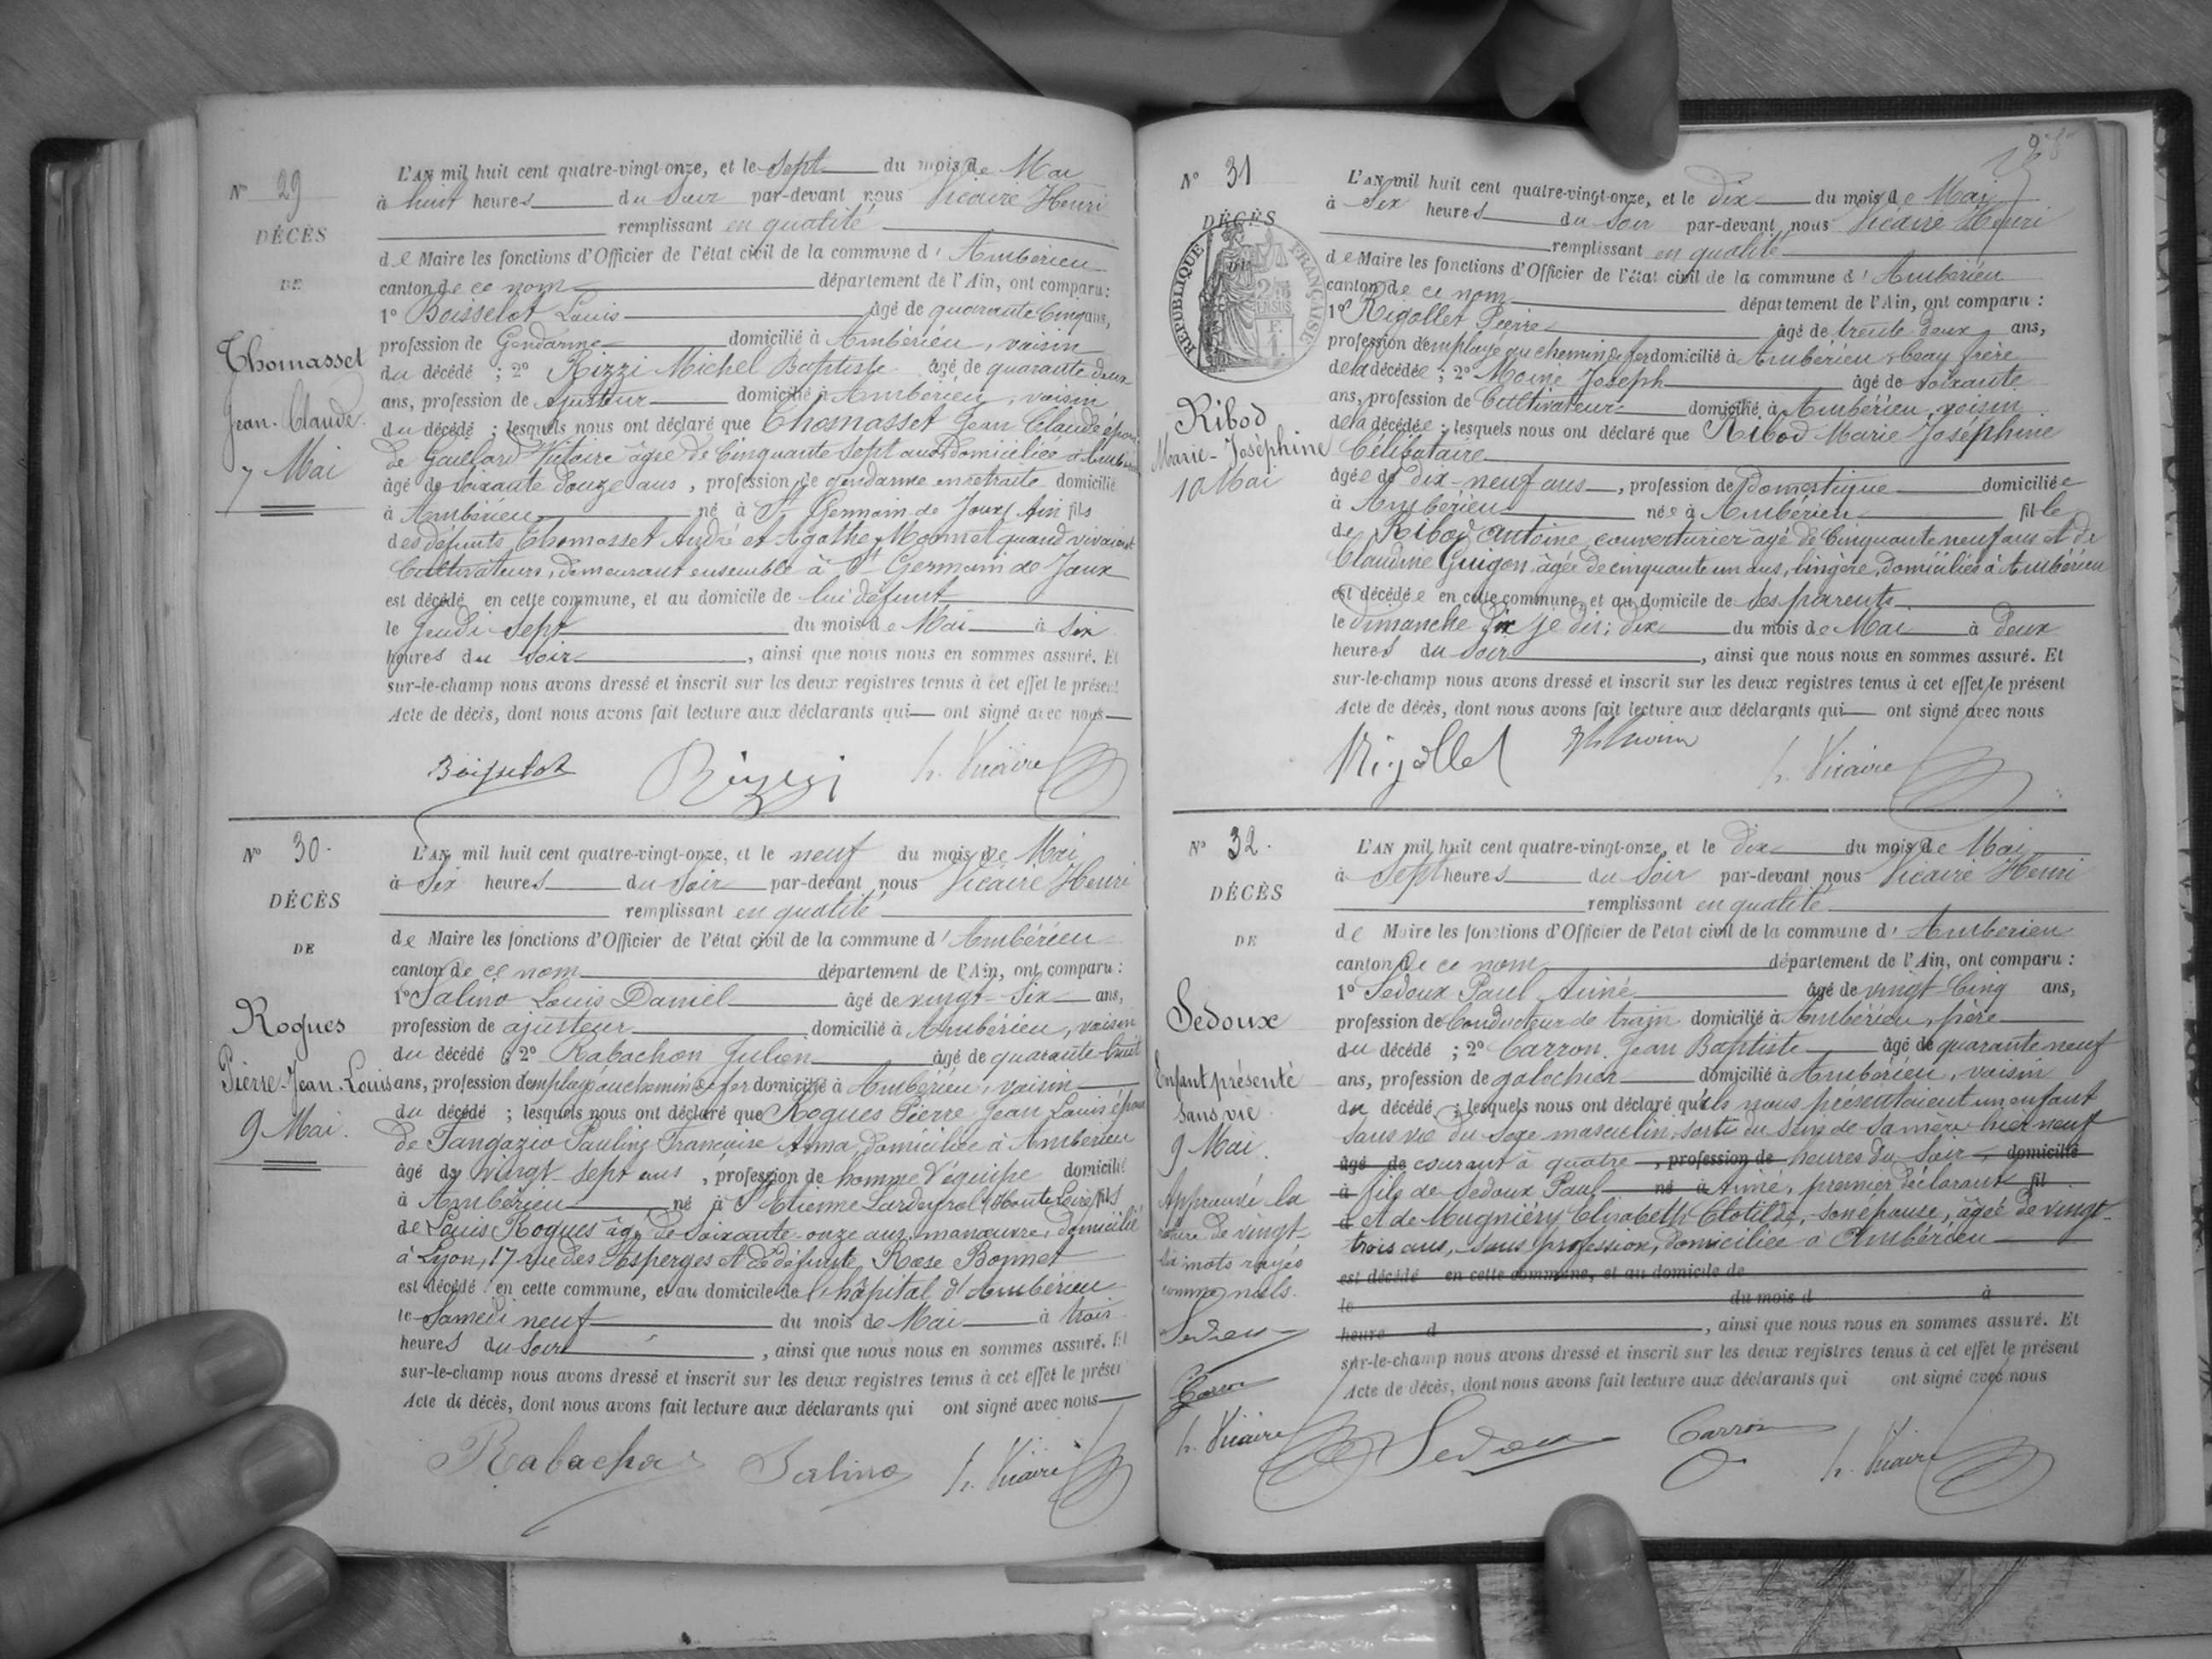 N° 29
DÉCÈS
DE
Thomasset
Jean-Claude
7 Mai
L'AN mil huit cent quatre-vingt-onze, et le sept du mois de Mai
à huit heures du soir par-devant nous Vicaire Henri
remplissant en qualité
de Maire les fonctions d'Officier de l'état civil de la commune d'Ambérieu
canton de ce nom département de l'Ain, ont comparu :
1° Boisselot Louis âgé de quarante cinq ans,
profession de Gendarme domicilié à Ambérieu, voisin
du décédé ; 2° Rizzi Michel Baptiste âgé de quarante deux
ans, profession de ajusteur domicilié à Ambérieu, voisin
du décédé ; lesquels nous ont déclaré que Thomasset Jean Claude époux
de Gaillard Vitoire âgée de Cinquante sept ans domiciliée à Ambérieu
âgé de soixante douze ans, profession de gendarme en retraite domicilié
à Ambérieu né à St Germain de Joux, Ain fils
des défunts Thomasset André et Agathe Mermet quand vivaient
Cultivateurs, demeurant ensemble à St Germain de Joux
est décédé en cette commune, et au domicile de lui défunt
le Jeudi sept du mois de Mai à six
heures du soir, ainsi que nous nous en sommes assuré. Et
sur-le-champ nous avons dressé et inscrit sur les deux registres tenus à cet effet le présent
Acte de décès, dont nous avons fait lecture aux déclarants qui ont signé avec nous
Boisselot Rizzi h. Vicaire
N° 30.
DÉCÈS
DE
Roques
Pierre-Jean-Louis
9 Mai.
L'AN mil huit cent quatre-vingt-onze, et le neuf du mois de Mai
à Six heures du soir par-devant nous Vicaire Henri
remplissant en qualité
de Maire les fonctions d'Officier de l'état civil de la commune d'Ambérieu
canton de ce nom département de l'Ain, ont comparu :
1° Salino Louis Daniel âgé de vingt-six ans,
profession de ajusteur domicilié à Ambérieu, voisin
du décédé ; 2° Rabachon Julien âgé de quarante huit
ans, profession d'employé au chemin de fer domicilié à Ambérieu, voisin
du décédé ; lesquels nous ont déclaré que Roques Pierre Jean Louis époux
de Tangazio Pauline Françoise Anna, domiciliée à Ambérieu
âgé de vingt-sept ans, profession de homme d'équipe domicilié
à Ambérieu né à St Etienne Lardeyrol (Haute Loire) fils
de Louis Roques âgé de soixante-onze ans, manœuvre, domicilié
à Lyon, 17 rue des Asperges et de défunte Rose Bonnet
est décédé en cette commune, et au domicile de l'hôpital d'Ambérieu
le Samedi neuf du mois de Mai à trois
heures du soir, ainsi que nous nous en sommes assuré. Et
sur-le-champ nous avons dressé et inscrit sur les deux registres tenus à cet effet le présent
Acte de décès, dont nous avons fait lecture aux déclarants qui ont signé avec nous
Rabachon Salino h. Vicaire
N° 31
DÉCÈS
RÉPUBLIQUE FRANÇAISE
Ribod
Marie-Joséphine
10 Mai
L'AN mil huit cent quatre-vingt-onze, et le dix du mois de Mai
à Six heures du soir par-devant nous Vicaire Henri
remplissant en qualité
de Maire les fonctions d'Officier de l'état civil de la commune d'Ambérieu
canton de ce nom département de l'Ain, ont comparu :
1° Rigollet Pierre âgé de trente deux ans,
profession d'employé au chemin de fer domicilié à Ambérieu beau frère
de la décédée ; 2° Moine Joseph âgé de soixante
ans, profession de Cultivateur domicilié à Ambérieu, voisin
de la décédée ; lesquels nous ont déclaré que Ribod Marie Joséphine
Célibataire
âgée de dix-neuf ans, profession de domestique domiciliée
à Ambérieu née à Ambérieu fille
de Ribod Antoine, couverturier âgé de Cinquante neuf ans et de
Claudine Guigon âgée de cinquante un ans, lingère, domiciliés à Ambérieu
est décédée en cette commune, et au domicile de ses parents
le dimanche dix je dis : dix du mois de Mai à deux
heures du soir, ainsi que nous nous en sommes assuré. Et
sur-le-champ nous avons dressé et inscrit sur les deux registres tenus à cet effet le présent
Acte de décès, dont nous avons fait lecture aux déclarants qui ont signé avec nous
Rigollet h. Vicaire
N° 32.
DÉCÈS
DE
Sedoux
Enfant présenté
sans vie
9 Mai.
Approuvé la
rature de vingt-
six mots rayés
comme nuls.
Sedoux
Carron
h. Vicaire
L'AN mil huit cent quatre-vingt-onze, et le dix du mois de Mai
à Sept heures du soir par-devant nous Vicaire Henri
remplissant en qualité
de Maire les fonctions d'Officier de l'état civil de la commune d'Ambérieu
canton de ce nom département de l'Ain, ont comparu :
1° Sedoux Paul Aimé âgé de vingt-Cinq ans,
profession de Conducteur de train domicilié à Ambérieu, père
du décédé ; 2° Carron Jean Baptiste âgé de quarante neuf
ans, profession de galochier domicilié à Ambérieu, voisin
du décédé ; lesquels nous ont déclaré qu'ils nous présentaient un enfant
sans vie du sexe masculin, sorti du sein de sa mère hier neuf
âgé de courant à quatre, profession de heures du soir, domicilié
à fils de Sedoux Paul né à Aimé, premier déclarant fil
d et de Mugniéry Elisabeth Clotilde, son épouse, âgée de vingt-
trois ans, sans profession, domiciliée à Ambérieu
est décédé en cette commune, et au domicile de
le du mois d à
heure d, ainsi que nous nous en sommes assuré. Et
sur-le-champ nous avons dressé et inscrit sur les deux registres tenus à cet effet le présent
Acte de décès, dont nous avons fait lecture aux déclarants qui ont signé avec nous
Sedoux Carron h. Vicaire